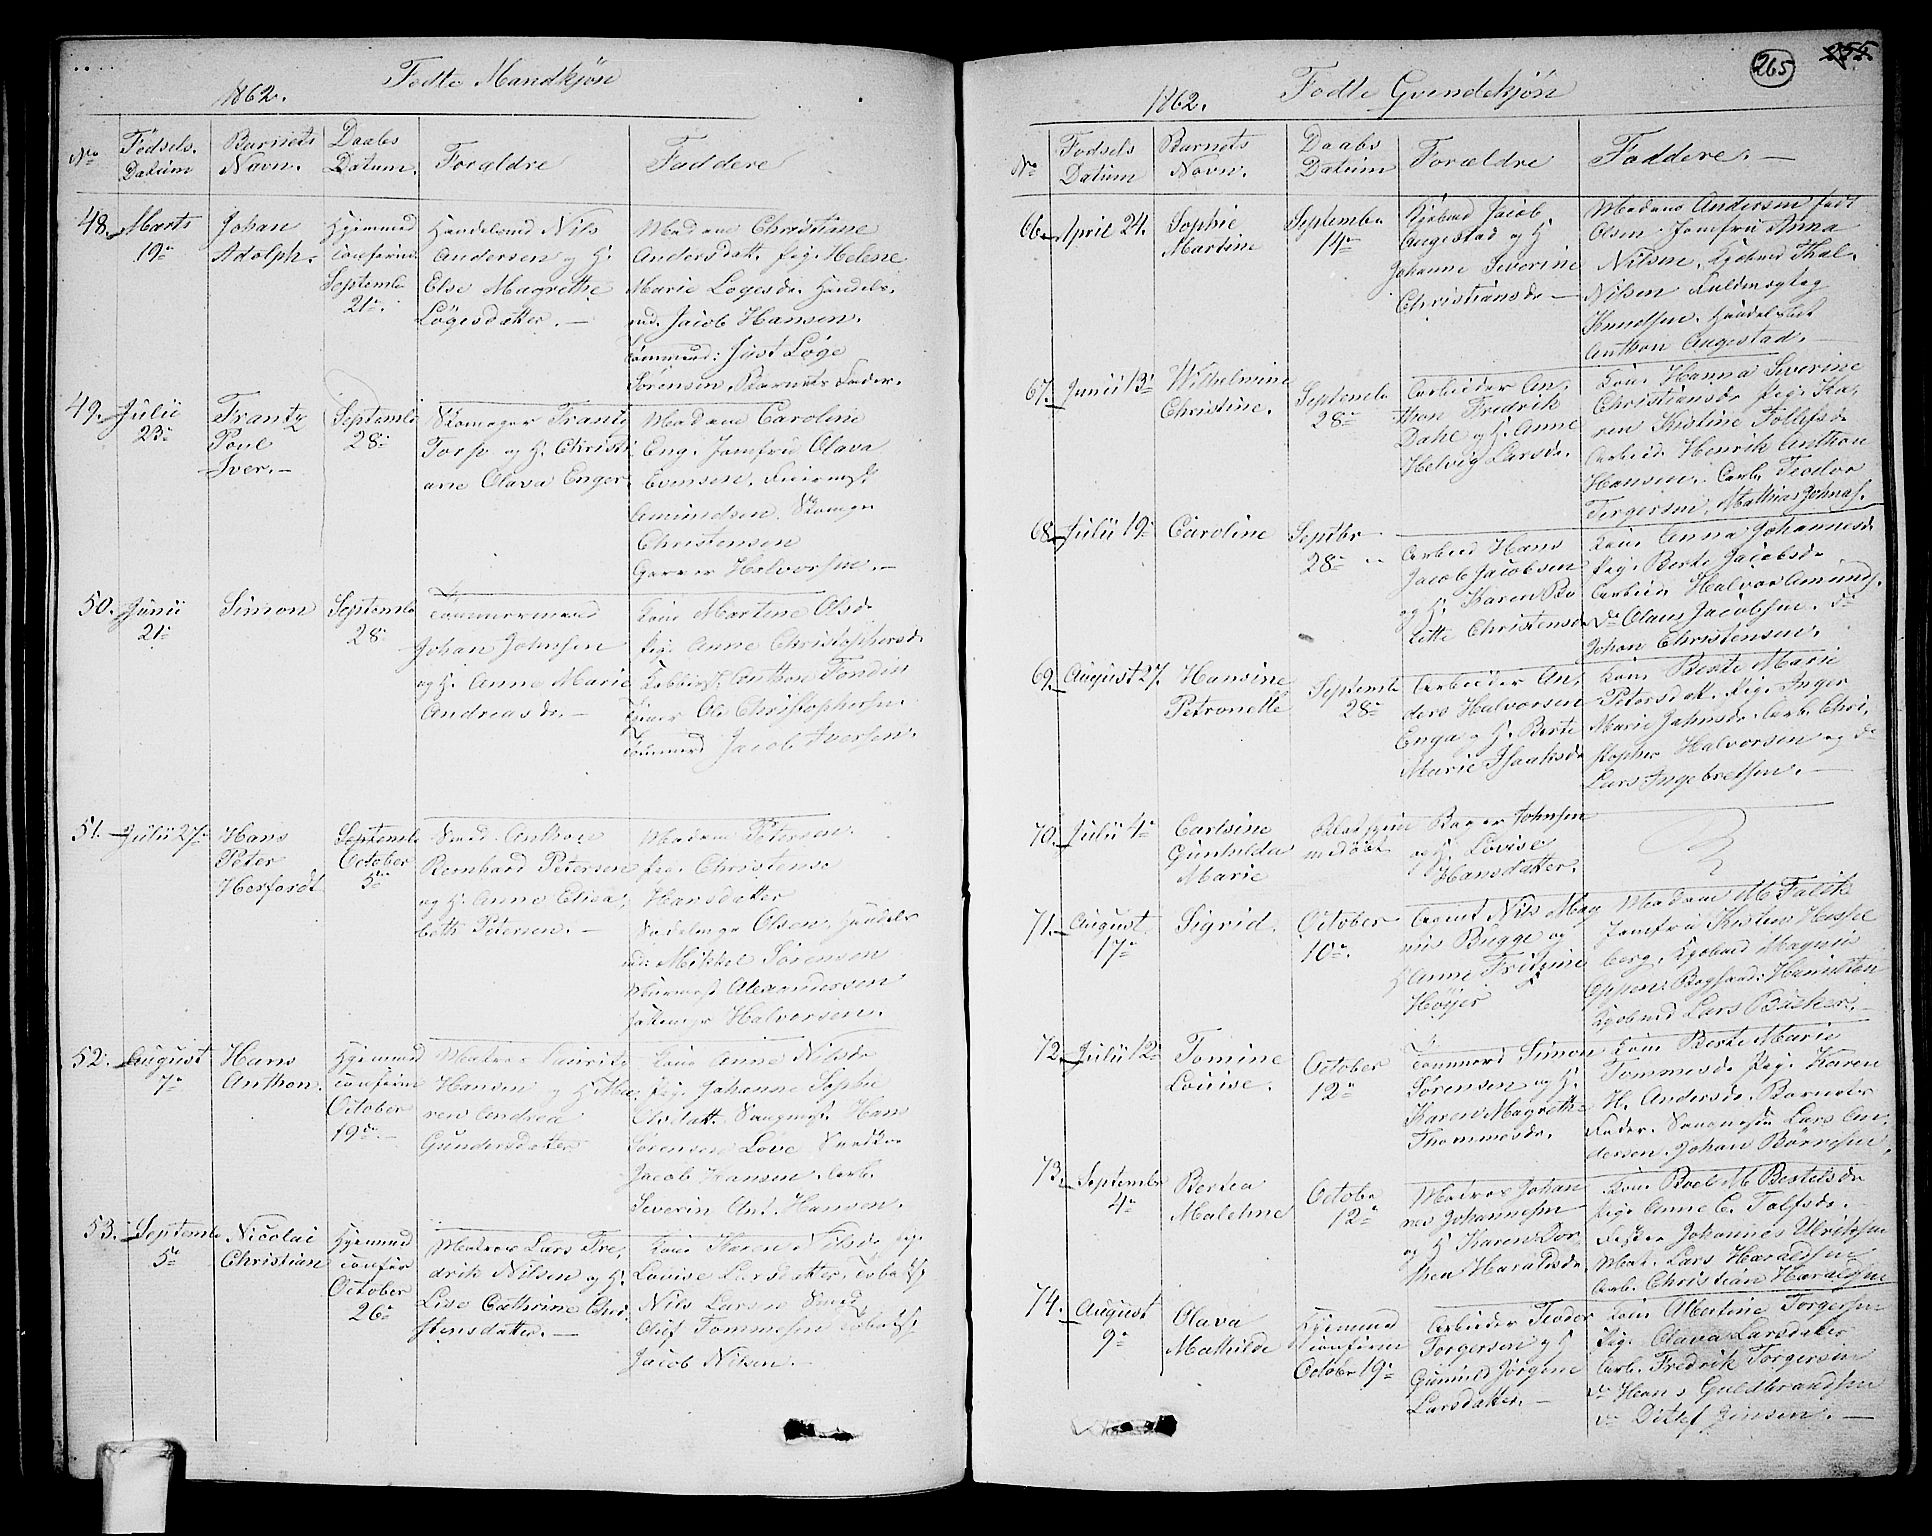 1862. Fødte Mandkjøn
No
Fødsels Datum
Barnets Navn.
Daabs Datum.
Forældre
Faddere
48. Marts 19de
Johan Adolph.
Hjemmed confirm. Septemb 21de
Handelsmd Nils
Andersen og H.
Else Magrethe
Løgesdatter.
Madame Christiane
Andersdatt. Pig. Helene
Marie Løgesd. Handels
md. Jacob Hansen.
Tømmermd: Just Løge
Sørensen, Barnets Fader.
49. Julii 23de
Frantz Poul Iver.
Septemb 28de
Skomager Frantz
Torp og H. Christi
ane Olava Enger
Madame Caroline
Eng. Jomfru Olava
Evensen.
Amundsen. Skomgr
Christensen
Garver Halvorsen.
50. Junii 21de
Simon
Septemb 28de
Tømmermand
Johan Johnsen
og H. Anne Marie
Andreasd.
Kone Martine Olsd
Pig. Anne Christophersd.
Anthon Fondin
Ole Christophersen
Tømmermd Jacob Iversen.
51. Julii 27de
Hans Peter Herfordt
Septemb October 5te
Smed Anthon
Romhard Petersen
og H. Anne Elisa,
beth Petersen.
Madame Petersen
Pig. Christense
Hansdatter
Sadelmgr Olsen, Handels
md: Mikkel Sørensen
Murmest Alexandersen
Halvorsen.
52. August 7de
Hans Anthon.
Hjemmed confirm October 19de
Matros Lauritz
Hansen og H. Ma,
ren Andrea
Gundersdatter
Kone Anne Nilsd
Pig. Johanne Sophie
Olsdatt. Hans
Sørensen Love
Jacob Hansen. Arb.
Severin Ant. Hansen.
53. Septemb 5te
Nicolai Christian
Hjemmed confir October 26de
Matros Lars Fre,
drik Nilsen og H.
Lise Cathrine Chri,
stensdatter.
Kone Karen Nilsd Pig.
Lovise Larsdatter,
Nils Larsen Smed
Oluf Tommesen
Jacob Nilsen.
265
255
1862. Fødte Qvindekjøn
No
Fødsels Datum
Barnets Navn.
Daabs Datum
Forældre
Faddere.
66. April 24.
Sophie Martine
Septembr 14de
Kjøbmd Jacob
Augestad og H.
Johanne Severine
Christiansd.
Madame Andersen født
Olsen. Jomfru Anna
Nilsen. Kjøbmd Thal.
Nilsen Fuldmægtig
Knudsen. Handelsbet
Anthon Augestad.
67. Junii 13de
Wilhelmine Christine.
Septemb 28de
Arbeider An,
thon Fredrik
Dahl og H. Anne
Helvig Larsd.
Kone Hanna Severine
Christiansd. Pig. Ka,
ren Kistine Tollefsd.
Arbeid. Henrik Anthon
Hansen. Arb. Teodor
Torgersen, Mathias Johnas.
68. Julii 19de
Caroline
Septbr 28de
Arbeid Hans
Jacob Jacobsen
og H. Karen Bo
lette Christensd.
Kone Anna Johannesd
Pig. Berte Jacobsd
Arbeid Halvor Amunds.
do Olaus Jacobsen. do
Johan Christensen.
69. August 27.
Hansine Petronelle
Septemb 28de
Arbeider An,
ders Halvorsen
Enga og H. Berte
Marie Isaaksd
Kone Berte Marie
Petersdatt. Pig. Inger
Marie Johnsd. Arb. Chri,
stopher Halvorsen og do
Lars Ingebretsen.
70. Julii 4de
Carlsine Gunhilda Marie
medøbt
Bager Johnsen
og H. Lovise
Hansdatter.
71. August 17de
Sigrid.
October 10de.
Agent Nils Mag
nus Bugge og
H Anne Fritzine
Høyer
Madame M. Falck
Jomfru Kisten Hessel
berg, Kjøbmd Magnus
Eppen. Hamilton
Kjøbmd Lars Bücher.
72. Julii 12de
Tomine Lovise.
October 12de
Tømmermd Simon
Sørensen og H.
Karen Magrethe
Thommesd.
Kone Berte Marie
Tommesd. Pig. Karen
H. Andersd. Barnets
Fader. Lars An,
dersen. Johan Børresen.
73. Septembr 4de
Bertea Malehne
Octobe 12de
Matros Johan
nes Johannesen
og H. Karen Dor
thea Haraldsd.
Kone Boel M. Bertelsd
Pig. Anne C. Tolfsd.
Johannes Ulriksen
Mat. Lars Haraldsen
Arb. Christian Haraldsen
74. August 9de
Olava Mathilde
Hjemmed confirm October 19de
Arbeider Teodor
Torgersen og H
Gunnild Jørgine
Larsdatter.
Kone Albertine Torgersen
Pig. Olava Larsdatter
Arb. Fredrik Torgersen
do Hans Guldbrandsen
do Ditlef Jensen.